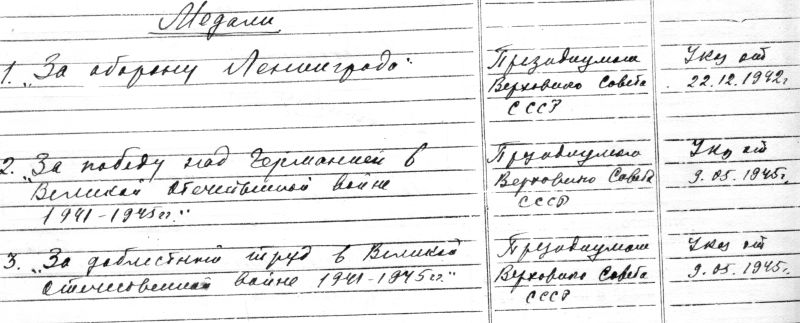 Медали
1. „За оборону Ленинграда"
Президиумом
Верховного Совета
СССР
Указ от
22.12.1942г.
2. „За победу над Германией в
Великой Отечественной войне
1941-1945гг."
Президиумом
Верховного Совета
СССР
Указ от
9.05.1945г.
3. „За доблестный труд в Великой
Отечественной войне 1941-1945гг."
Президиумом
Верховного Совета
СССР
Указ от
9.05.1945г.